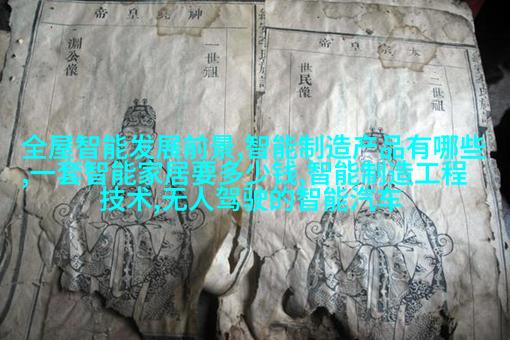 一世祖
淵公像
二世祖
世民像
全屋智能发展前景,智能制造产品有哪些
,一套智能家居要多少钱,智能制造工程
技术,无人驾驶的智能汽车